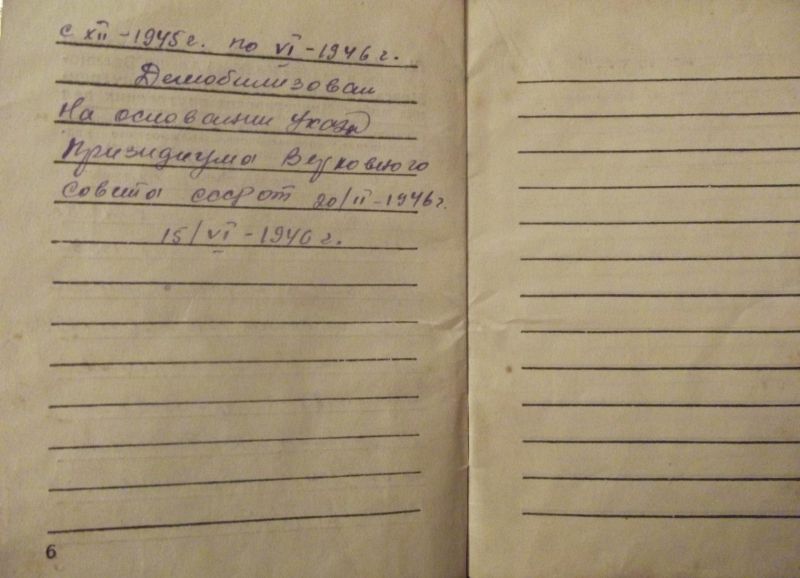 с XII - 1945 г. по VI - 1946 г.
Демобилизован
На основании Указа
Призидиума Верховного
Совета ссср от 20/II - 1946 г.
15/VI - 1946 г.
6